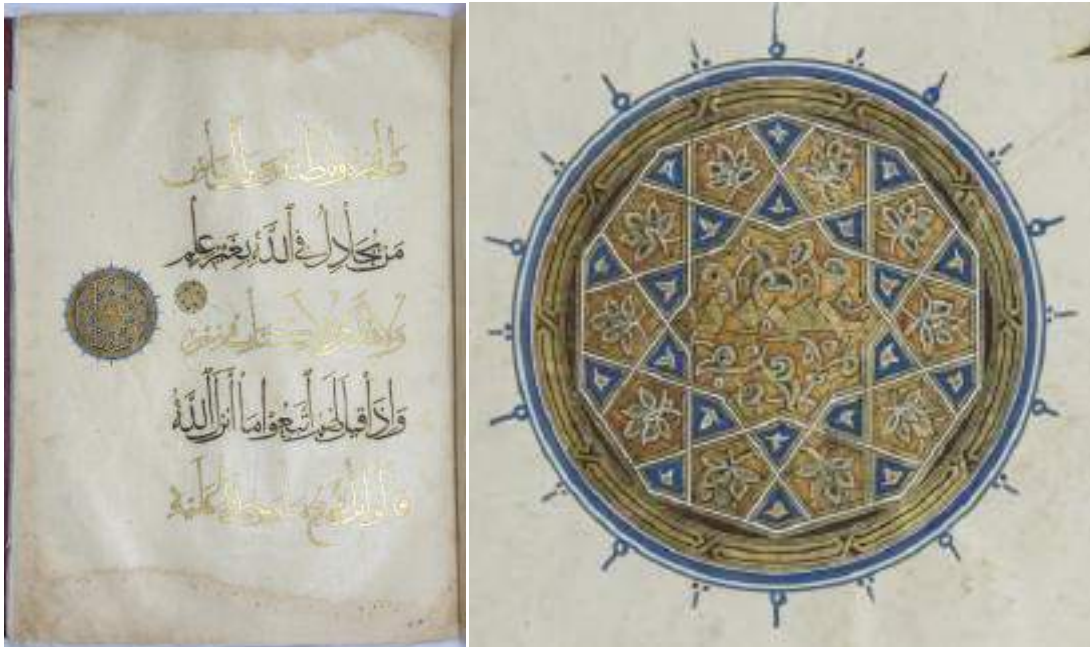 ظَاهِرَةً وَبَاطِنَةً وَمِنَ النَّاسِ
مَن يُجَادِلُ فِي اللَّهِ بِغَيْرِ عِلْمٍ
وَلَا هُدًى وَلَا كِتَابٍ مُنِيرٍ
وَإِذَا قِيلَ لَهُمُ اتَّبِعُوا مَا أَنْزَلَ اللَّهُ
قَالُوا بَلْ نَتَّبِعُ مَا وَجَدْنَا عَلَيْهِ